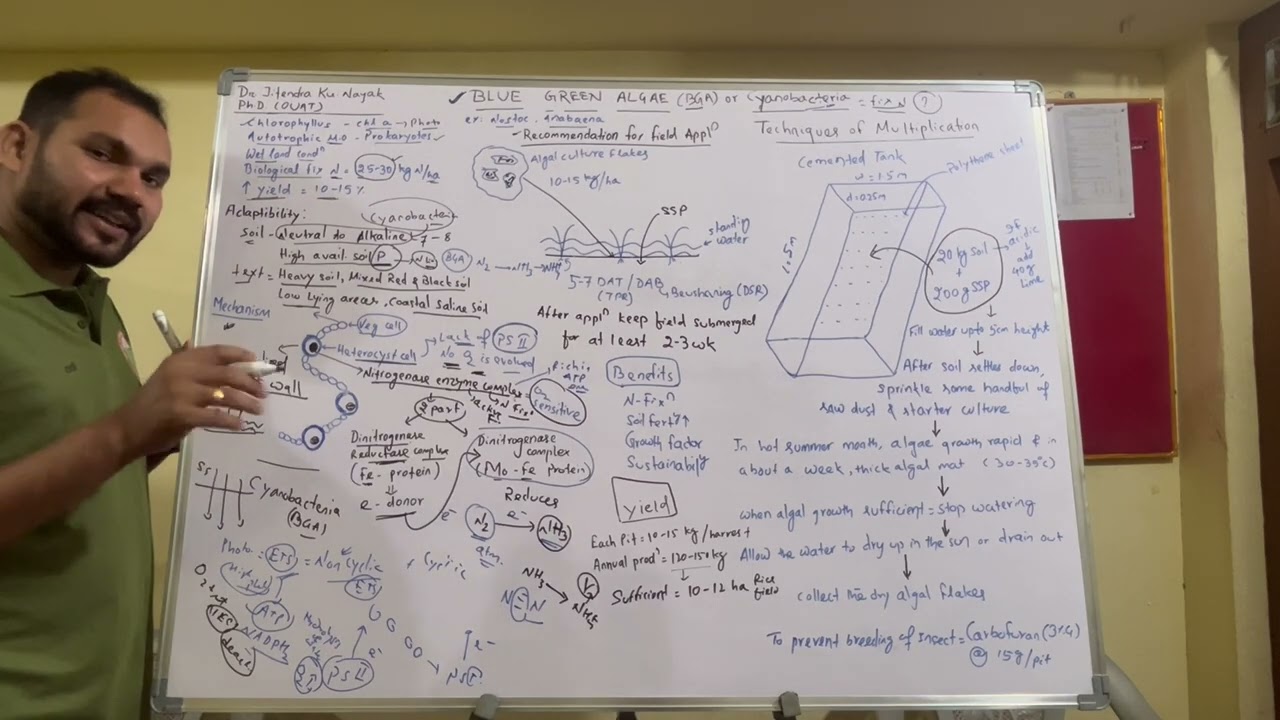 Dr. Jitendra Ku. Nayak
Ph.D. (OUAT)
✓ BLUE GREEN ALGAE (BGA) or Cyanobacteria = fix N ?
ex: Nostoc, Anabaena
Chlorophyllus - chl a → Photo
Autotrophic M.O - Prokaryotes
Wet land condⁿ
Biological fix N = 25-30 kg N/ha
↑ yield = 10-15%
Adaptibility:
Cyanobacter
Soil - Neutral to Alkaline - 7-8
High avail. soil P →
text = Heavy soil, Mixed Red & Black soil
Low lying areas, Coastal Saline Soil
BGA N₂ → NH₃ → NH₄⁺
Recommendation for field Applⁿ
Algal culture flakes
10-15 kg/ha
SSP
standing
water
5-7 DAT / DAB
(TPR) Beushaning (DSR)
After applⁿ keep field submerged
for at least 2-3 wk
Mechanism
Veg cell
Heterocyst cell
wall
Lack of PS II
No O₂ is evolved
Nitrogenase enzyme complex
Rich in
ATP
Active N Fixⁿ
O₂
sensitive
2 part
Dinitrogenase
Reductase complex
(Fe - protein)
e⁻ donor
Dinitrogenase
complex
(Mo - Fe protein)
Reduces
e⁻
N₂ e⁻ → NH₃
atm.
NH₃
N≡N
Cyanobacteria
(BGA)
Photo = ETS = Non Cyclic + Cyclic
ATP
NADPH₂
PS II
e⁻
Benefits
N-Fixⁿ
Soil Fert↑
Growth factor
Sustainability
yield
Each Pit = 10-15 kg/harvest
Annual prodⁿ = 120-150 kg
Sufficient = 10-12 ha Rice
field
Techniques of Multiplication
Cemented Tank
w = 1.5m
d = 0.25m
Polythene sheet
20 kg Soil
+
200 g SSP
If
acidic
add
40g
lime
Fill water upto 5cm height
After soil settles down,
sprinkle some handful of
saw dust & starter culture
In hot summer month, algae growth rapid & in
about a week, thick algal mat (30-35°c)
when algal growth sufficient = stop watering
Allow the water to dry up in the sun or drain out
collect the dry algal flakes
To prevent breeding of Insect = Carbofuran (3%G)
@ 15g/pit